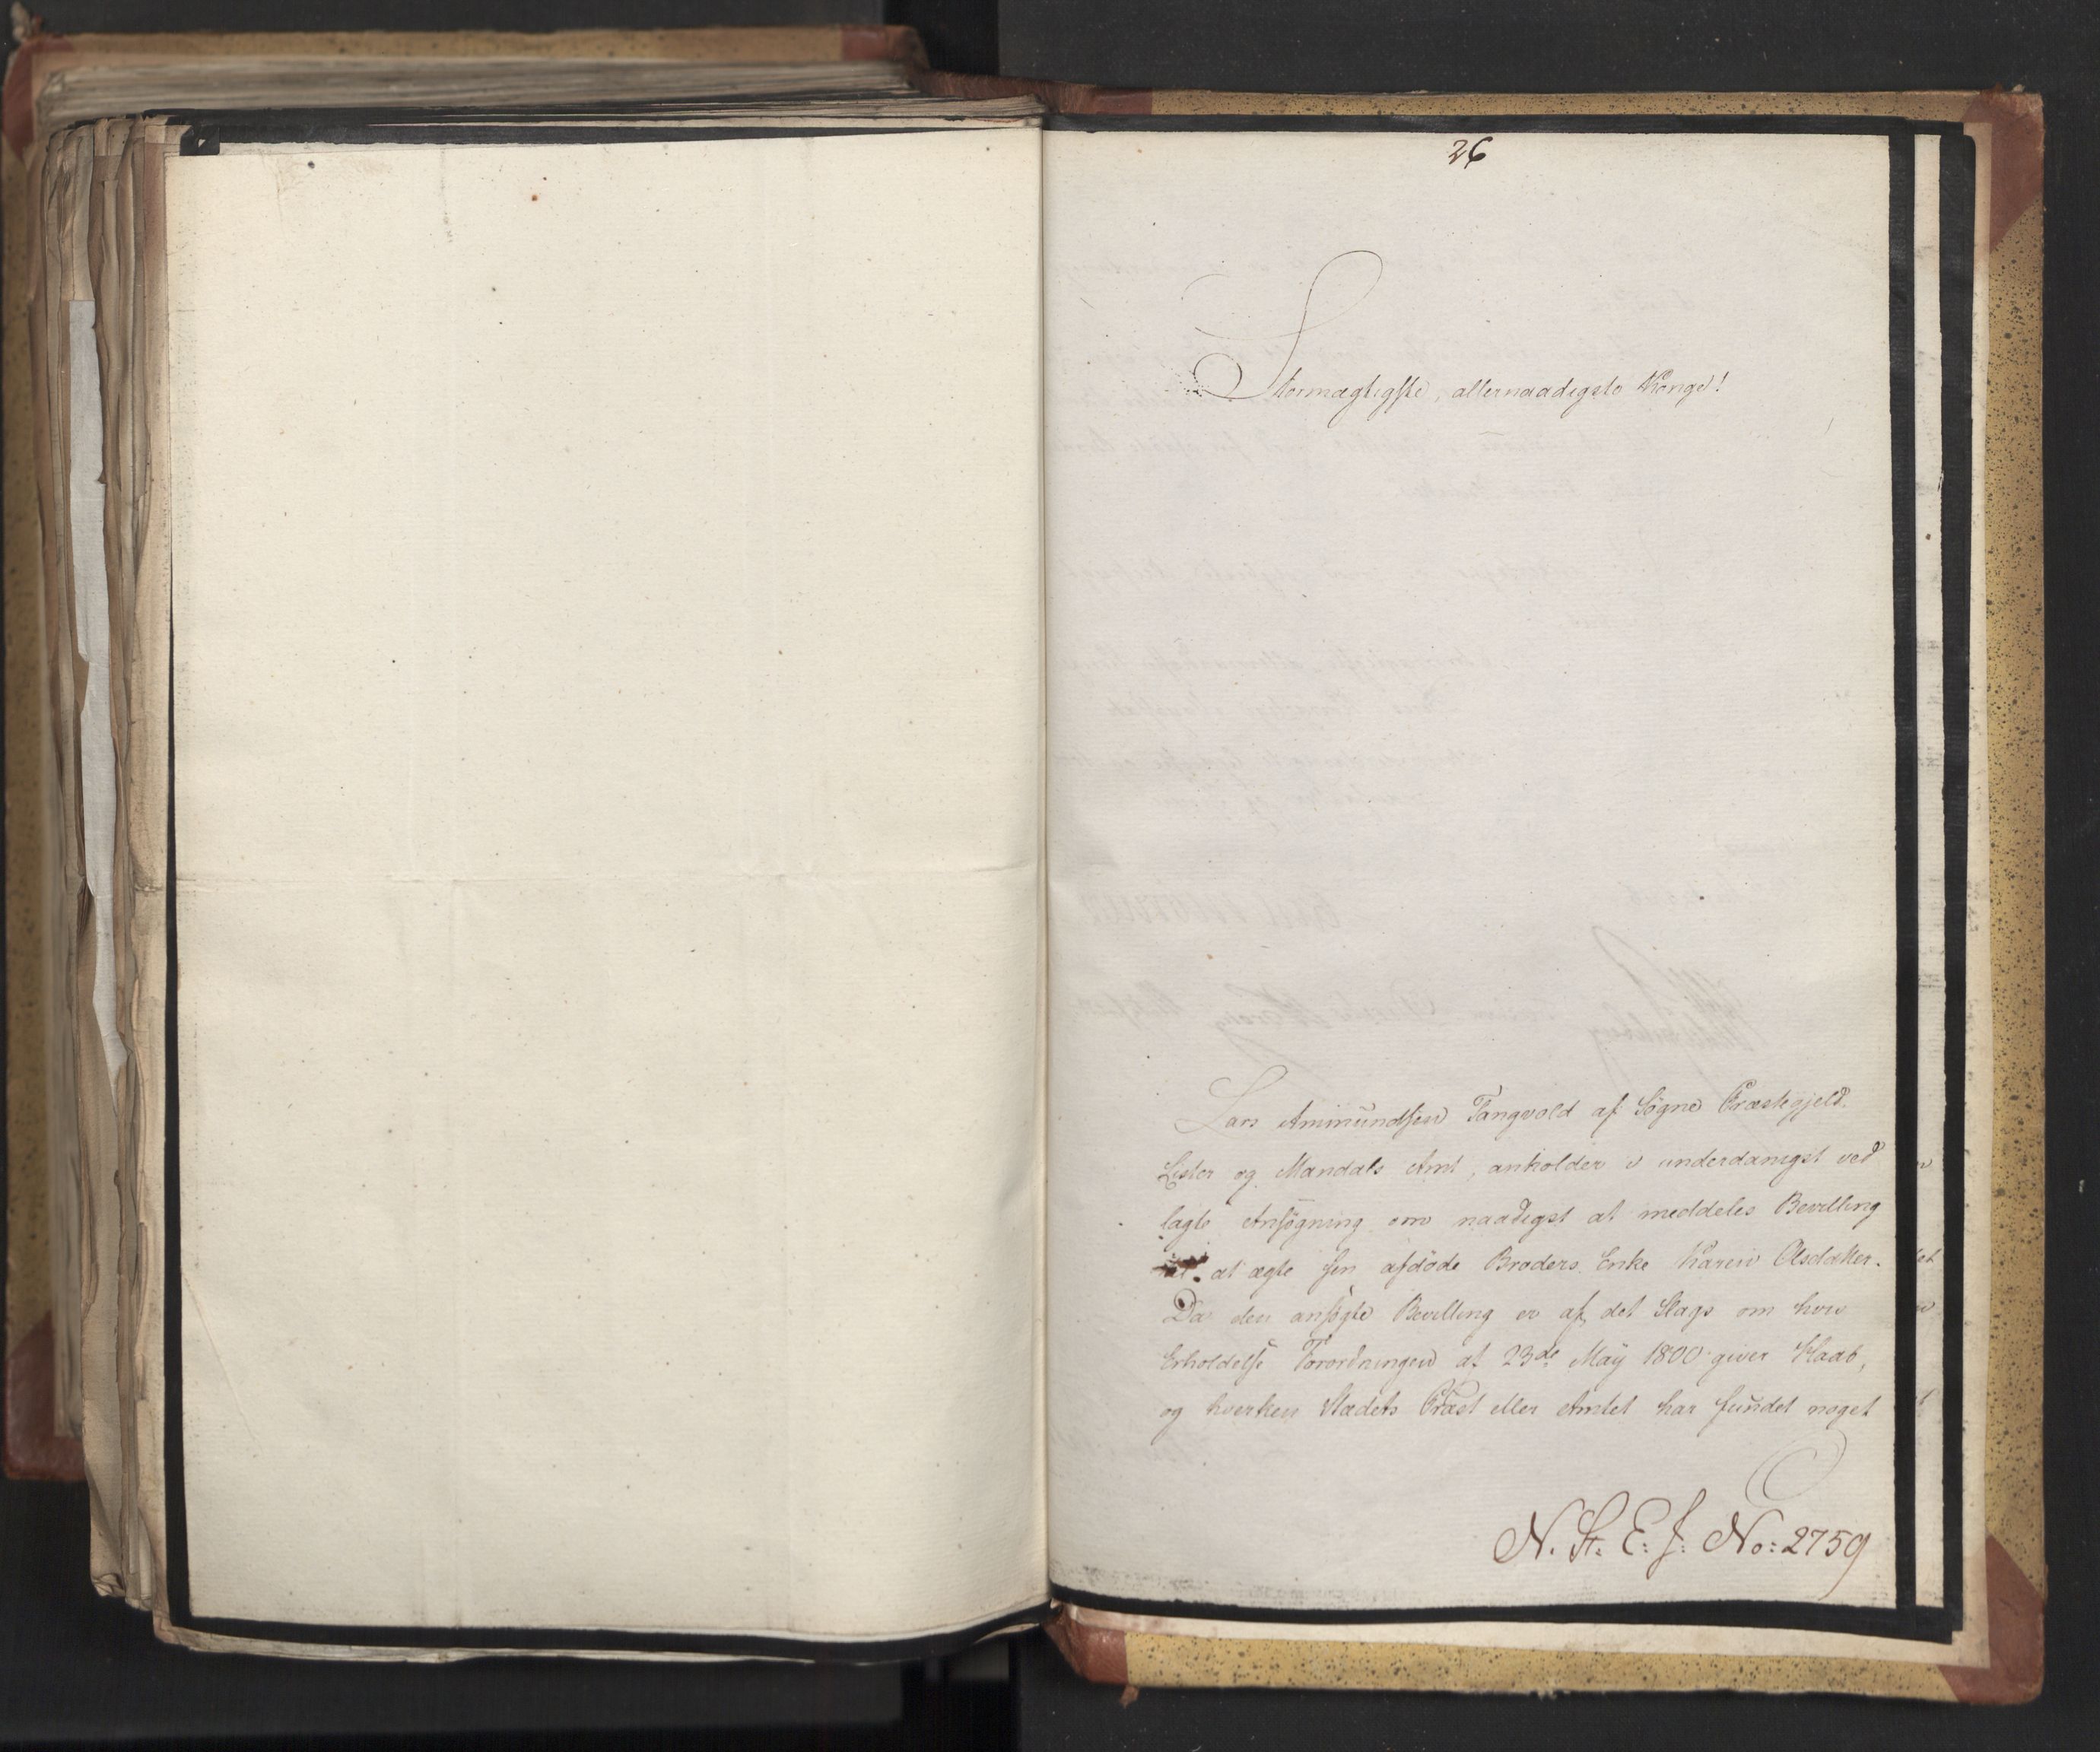 26
Stormægtigste, allernaadigste Konge!
Lars Ammundsen Tangvald af Søgne Præstegjeld
Lister og Mandals Amt, anholder i underdanigst ved
lagte Ansøgning om naadigst at meddeles Bevilling
til at ægte sin afdøde Broders Enke Karen Olsdatter.
Da den ansøgte Bevilling er af det Slags om hvis
Erholdelse Forordningen af 23de May 1800 giver Haab,
og hverken Stedets Præst eller Amtet har fundet noget
N. St. E. f: No: 2759